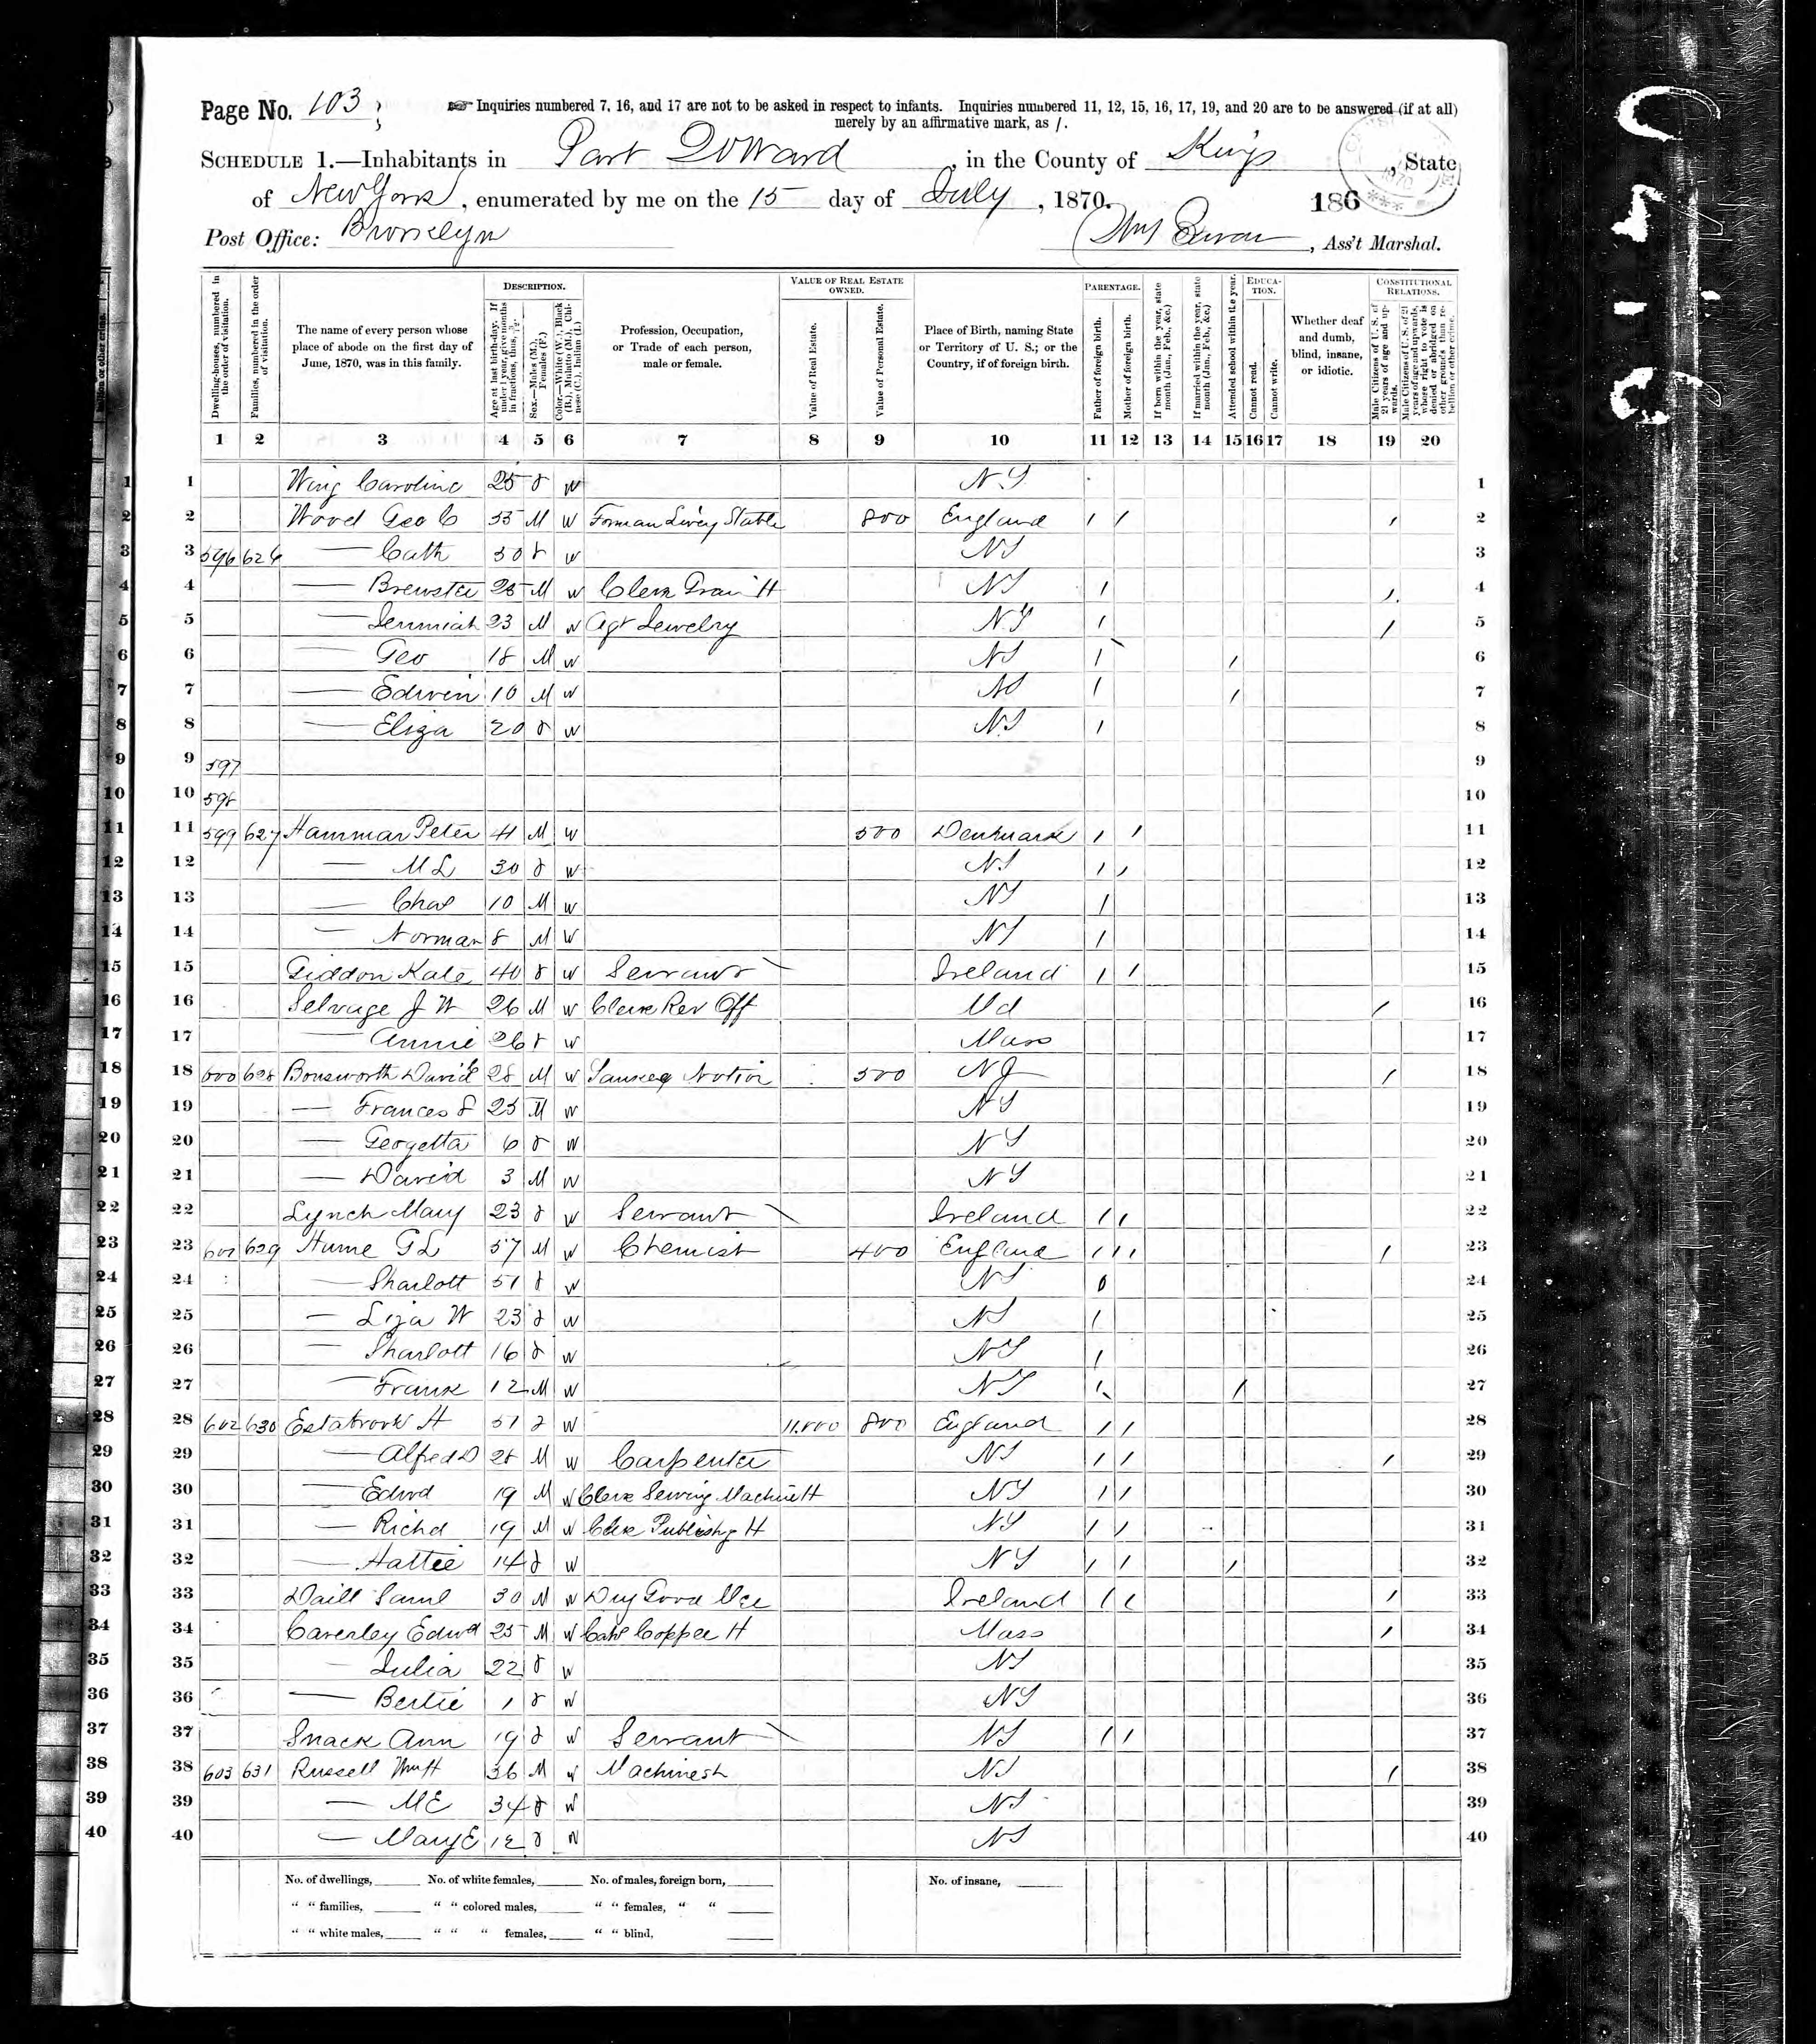 Page No. 103
Inquiries numbered 7, 16, and 17 are not to be asked in respect to infants. Inquiries numbered 11, 12, 15, 16, 17, 19, and 20 are to be answered (if at all)
merely by an affirmative mark, as /.
SCHEDULE 1.—Inhabitants in Part 20 Ward, in the County of Kings, State
of New York, enumerated by me on the 15 day of July, 1870. 186
Post Office: Brooklyn , Ass't Marshal.
Dwelling-houses, numbered in the order of visitation.
Families, numbered in the order of visitation.
The name of every person whose place of abode on the first day of June, 1870, was in this family.
DESCRIPTION.
Age at last birth-day. If under 1 year, give months in fractions, thus, 3/12.
Sex.—Males (M.), Females (F.)
Color.—White (W.), Black (B.), Mulatto (M.), Chinese (C.), Indian (I.)
Profession, Occupation, or Trade of each person, male or female.
VALUE OF REAL ESTATE OWNED.
Value of Real Estate.
Value of Personal Estate.
Place of Birth, naming State or Territory of U. S.; or the Country, if of foreign birth.
PARENTAGE.
Father of foreign birth.
Mother of foreign birth.
If born within the year, state month (Jan., Feb., &c.)
If married within the year, state month (Jan., Feb., &c.)
Attended school within the year.
EDUCATION.
Cannot read.
Cannot write.
Whether deaf and dumb, blind, insane, or idiotic.
CONSTITUTIONAL RELATIONS.
Male Citizens of U. S. of 21 years of age and upwards.
Male Citizens of U. S. of 21 years of age and upwards, whose right to vote is denied or abridged on other grounds than rebellion or other crime.
1 2 3 4 5 6 7 8 9 10 11 12 13 14 15 16 17 18 19 20
1 Wing Caroline 25 F W N.Y 1
2 Wood Geo C 55 M W Forman Livey Stable 800 England / / / 2
3 596 626 — Cath 50 F W NY 3
4 — Brewster 25 M W Clerk H NY / / 4
5 — Jermiah 23 M W Agt Jewelry NY / / 5
6 — Geo 18 M W NY / / 6
7 — Edwin 10 M W NY / / 7
8 — Eliza 20 F W NY / 8
9 597 9
10 598 10
11 599 627 Hammar Peter 41 M W 500 Denmark / / 11
12 — M L 30 F W NY / / 12
13 — Chas 10 M W NY / 13
14 — Norman 8 M W NY / 14
15 Giddon Kate 40 F W Servant Ireland / / 15
16 Selvage J W 26 M W Clerk Rev Off Md / 16
17 — Annie 26 F W Mass 17
18 600 628 Bonsworth David 28 M W 500 NJ / 18
19 — Frances 25 M W NY 19
20 — Georgetta 6 F W NY 20
21 — David 3 M W NY 21
22 Lynch Mary 23 F W Servant Ireland / / 22
23 601 629 Hume G L 57 M W Chemist 400 England / / / / 23
24 — Sharlott 51 F W NY 24
25 — Liza W 23 F W NY / 25
26 — Sharlott 16 F W NY / 26
27 — Frank 12 M W NY / / 27
28 602 630 Estabrook H 51 F W 11.000 800 England / / 28
29 — Alfred D 28 M W Carpenter NY / / / 29
30 — Edwd 19 M W Clerk Sewing Machine H NY / / 30
31 — Richd 19 M W Clk Publishg H NY / / 31
32 — Hattie 14 F W NY / / / 32
33 Saml 30 M W Dry Good Ireland / / / 33
34 Caverley Edwd 25 M W Copper H Mass / 34
35 — Julia 22 F W NY 35
36 — Bertie 1 F W NY 36
37 Snack Ann 19 F W Servant NY / / 37
38 603 631 Russell Wm H 36 M W Machinest NY / 38
39 — M E 34 F W NY 39
40 — Mary E 12 F W NY 40
No. of dwellings, No. of white females, No. of males, foreign born, No. of insane,
" " families, " " colored males, " " females, " "
" " white males, " " " females, " " blind,